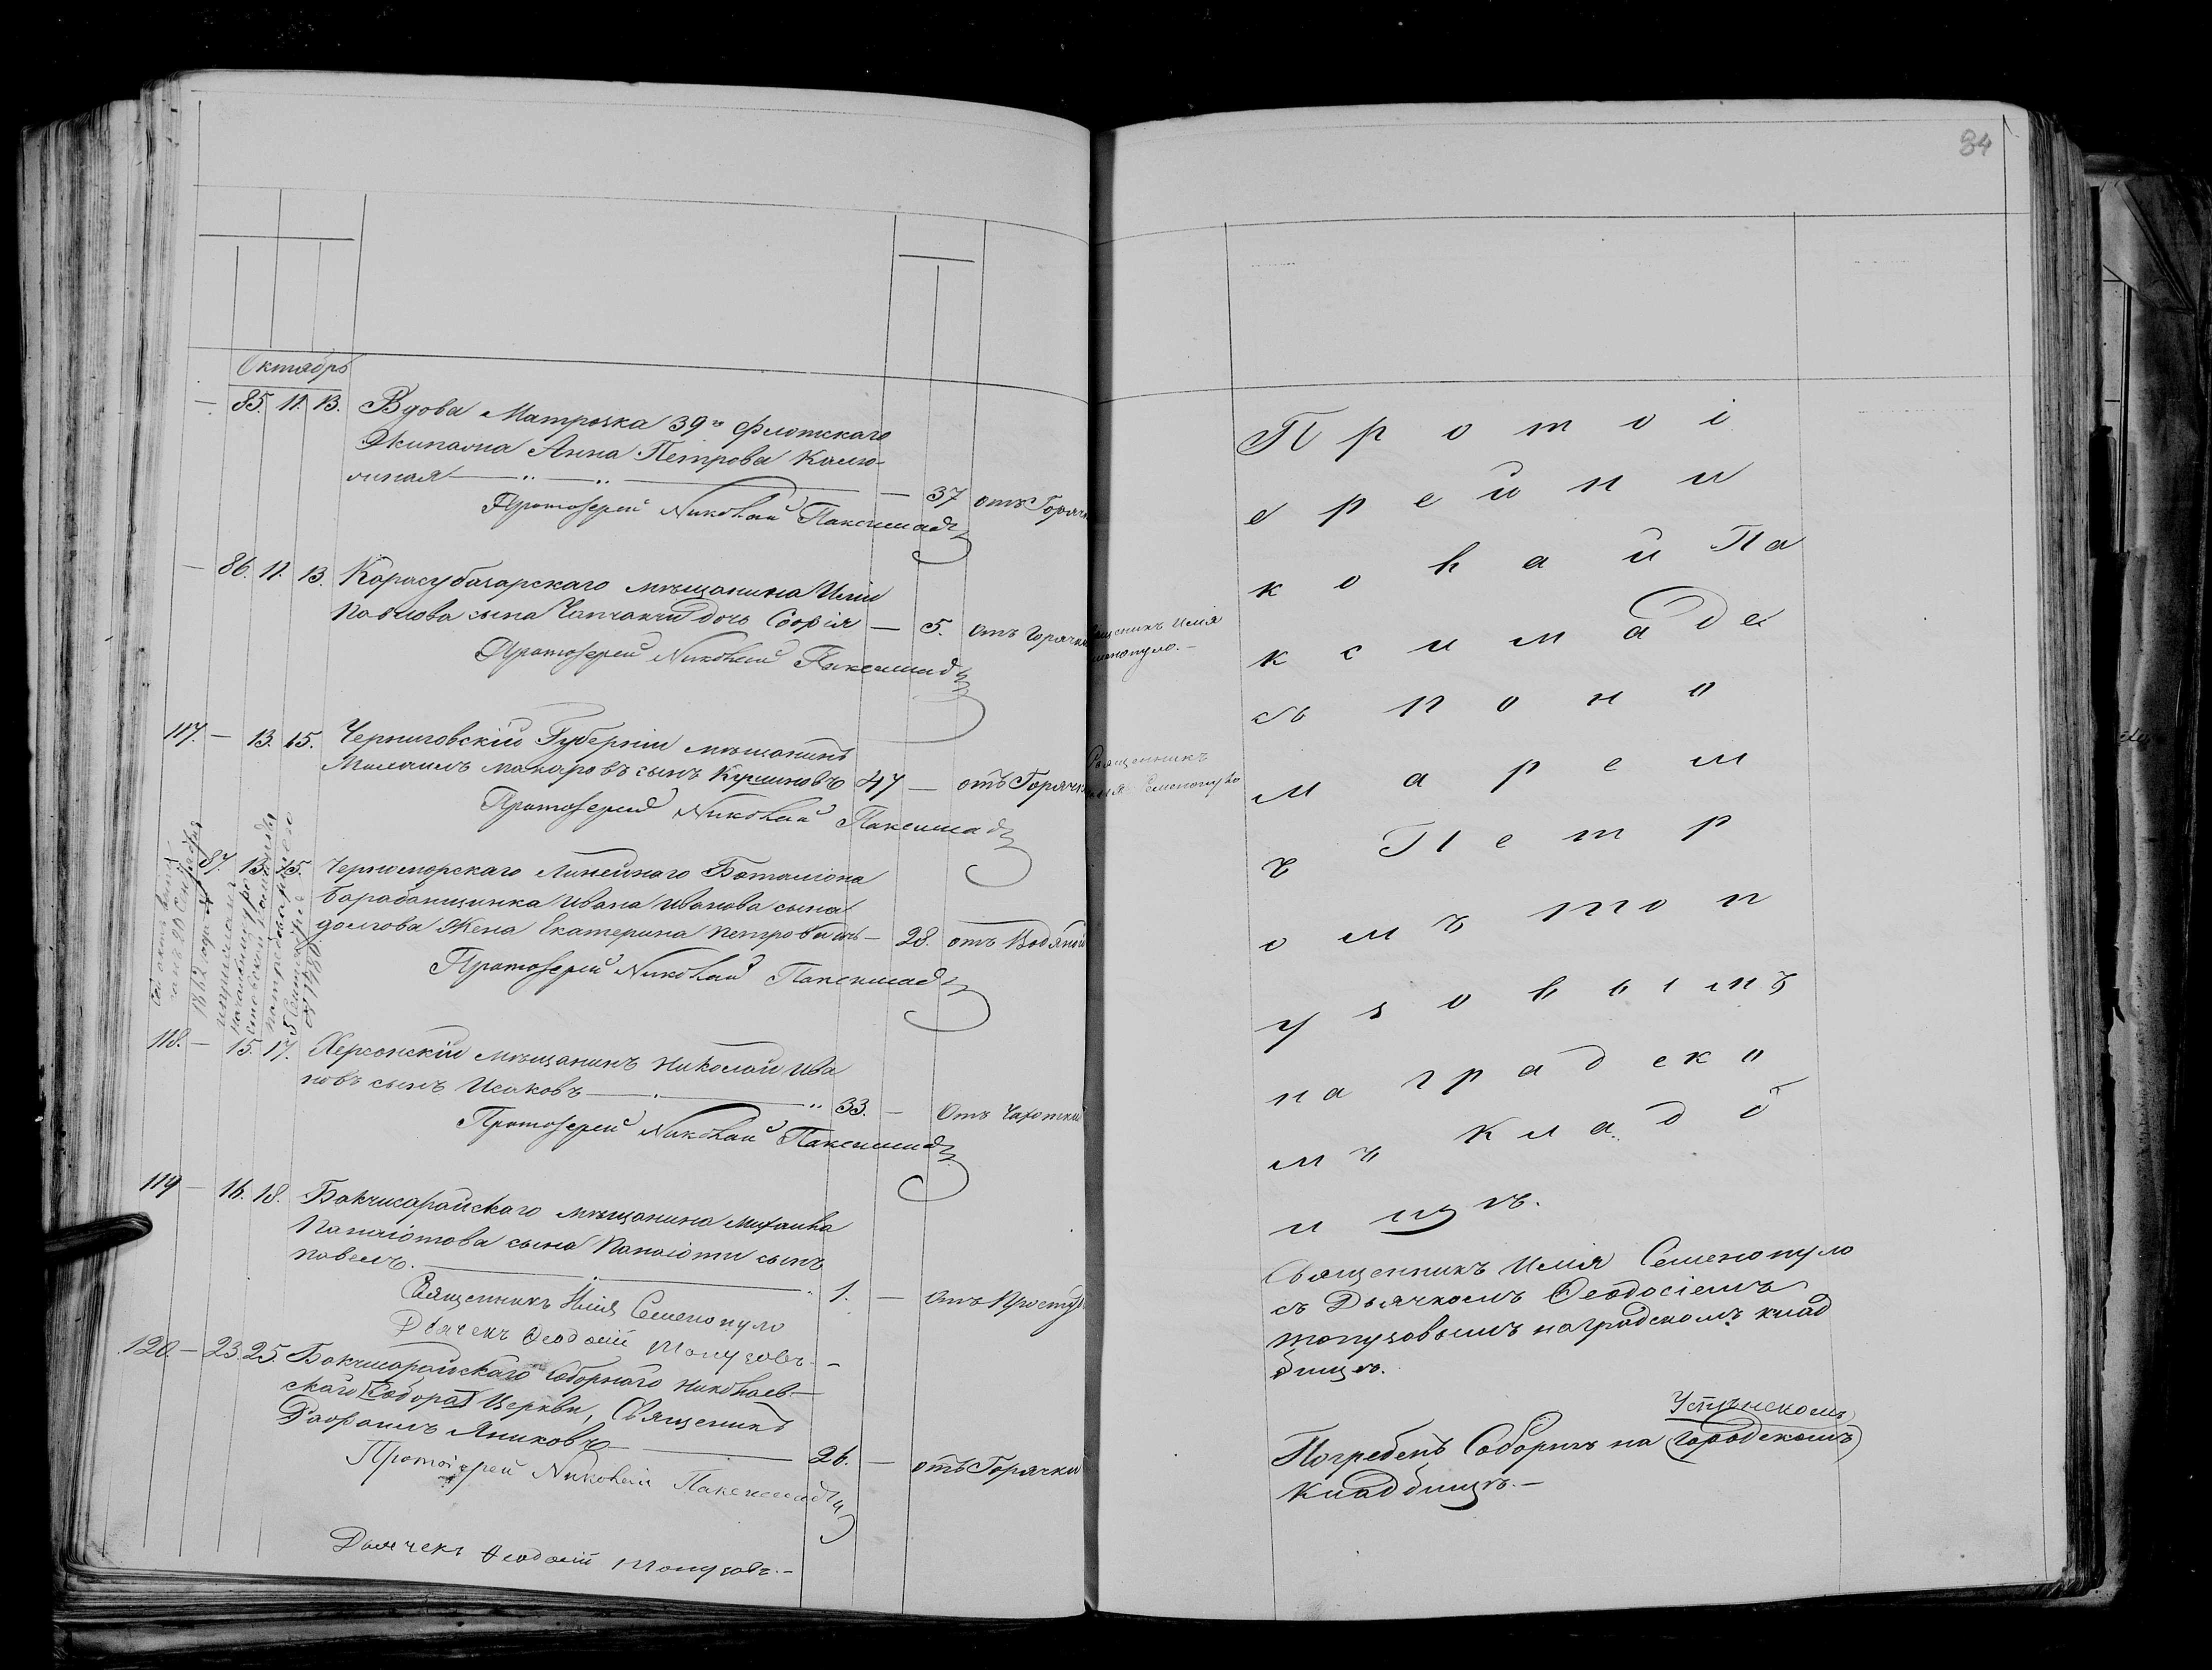 84
Октябрь
— 85. 11. 13. Вдова Матрозка 39го флотскаго
Экипажа Анна Петрова Калю-
жная — 37 отъ Горячк
Протоіерей Николай Паксимадъ
— 86. 11. 13. Карасубазарскаго мѣщанина Иліи
Павлова сына Чапчакчи дочь Софія — 5. отъ горячк
Протоіерей Николай Паксимадъ
117. — 13. 15. Черниговскій Губерніи мѣщанинъ
макаровъ сынъ 47 — отъ Горячк
Протоіерей Николай Паксимадъ
87. 13. 15. Черноморскаго Линейнаго Баталіона
барабанщика Ивана Иванова сына
долгова Жена Екатерина петрова — 28. отъ Водяной
Протоіерей Николай Паксимадъ
1862 года
118. — 15. 17. Херсонскій мѣщанинъ Николай Ива
новъ сынъ Исаковъ — 33. — Отъ Чахотки
Протоіерей Николай Паксимадъ
119 — 16. 18. Бакчисарайскаго мѣщанина михаила
Панаіотова сына Панаіоти сынъ
павелъ. — 1. — Отъ Простуд
Священникъ Илія Семенопуло
Дьячекъ Ѳеодосій Топузовъ. —
120. — 23. 25. Бакчисарайскаго Соборнаго Николаев-
скаго (Собора) Церкви, Священикъ
Яниковъ — 26. — отъ Горячки
Протоіерей Николай Паксимадъ
Дьячекъ Ѳеодосій Топузовъ. —
щеникъ Илія
менопуло. —
Священникъ
илія Семенопуло
П р о т о і
е р е й н и
к о л а й Па
к с и м а де
съ п о н о
м а р е м
ъ П е т р
о м ъ т о п
у з о в ы м ъ
на г р а д с к о
м ъ к л а д б
и щ ѣ.
Священникъ Илія Семенопуло
съ Дьячкомъ Ѳеодосіемъ
топузовымъ на градскомъ клад
бищѣ.
Успѣнскомъ
Погребенъ Соборнѣ на (городскомъ)
Кладбищѣ. —